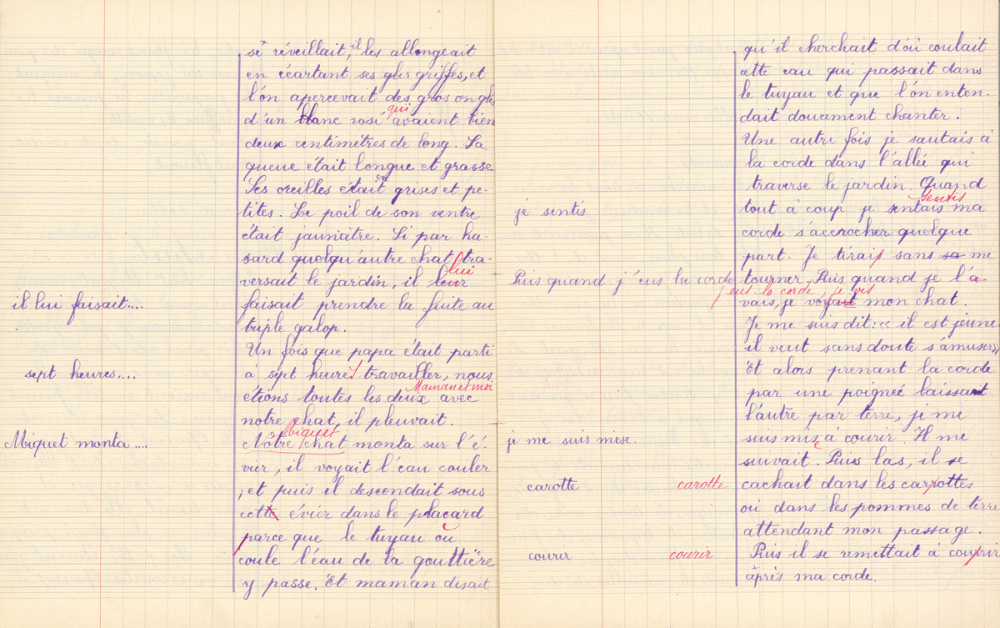 se réveillait, il les allongeait
en écartant ses griffes, et
l'on apercevait des gros ongles
d'un blanc rosé qui avaient bien
deux centimètres de long. Sa
queue était longue et grasse
Ses oreilles était grises et pe-
tites. Le poil de son ventre
était jaunâtre. Si par ha-
sard quelqu'autre chat tra-
versait le jardin, il leur lui
il lui faisait....
faisait prendre la fuite au
triple galop.
Un fois que papa était parti
sept heures....
à sept heures travailler, nous
étions toutes les deux Maman et moi avec
notre chat, il pleuvait.
Miquet monta....
Notre chat Miquet monta sur l'é-
vier, il voyait l'eau couler
, et puis il descendait sous
cette évier dans le placard
parce que le tuyau où
coule l'eau de la gouttière
y passe. Et maman disait
qu'il cherchait d'où coulait
cette eau qui passait dans
le tuyau et que l'on enten-
dait doucement chanter.
Une autre fois je sautais à
la corde dans l'allée qui
traverse le jardin. Quand
je sentis
tout à coup je sentais sentis ma
corde s'accrocher quelque
part. Je tirais sans me
Puis quand j'eus la corde
tourner. Puis quand je l'a
j'eus la corde, je vis
vais, je voyait mon chat.
Je me suis dit: « il est jeune
il veut sans doute s'amuser»,
Et alors prenant la corde
par une poigneé laissant
l'autre par terre, je me
je me suis mise.
suis mis e à courir. Il me
suivait. Puis las, il se
carotte carotte
cachait dans les carrottes
ou dans les pommes de terre
attendant mon passage.
courir courir
Puis il se remettait à courrir
âprés ma corde.